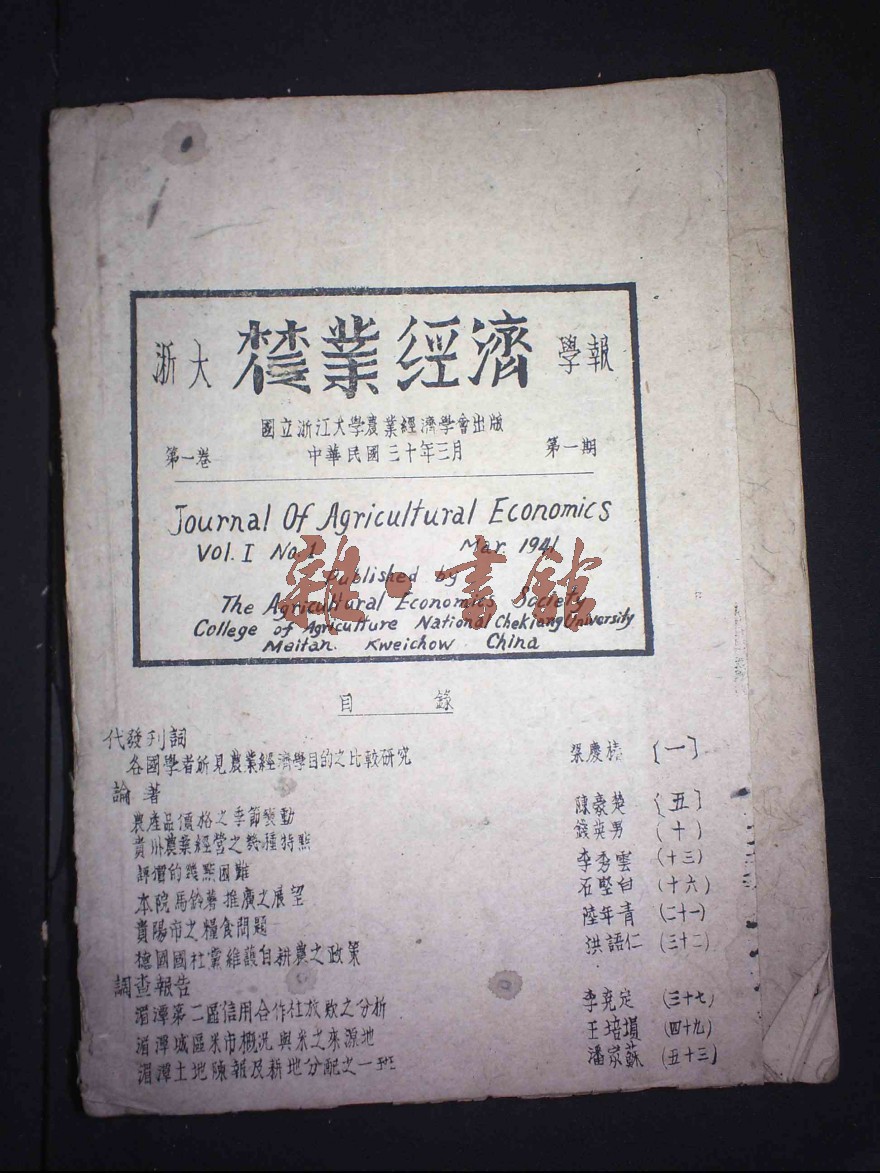 浙大 農業經濟 學報
國立浙江大學農業經濟學會出版
第一卷 中華民國三十年三月 第一期
Journal Of Agricultural Economics
Vol. I No. 1 Mar. 1941
Published by
The Agricultural Economics Society
College of Agriculture National Chekiang University
Meitan. Kweichow China
雜·書館
目錄
代發刊詞
各國學者所見農業經濟學目的之比較研究 張慶楨 〔一〕
論著
農產品價格之季節變動 陳豪楚 〔五〕
貴州農業經營之幾種特點 錢英男 (十)
評價的幾點困難 李秀雲 (十三)
本院馬鈴薯推廣之展望 石堅白 (十六)
貴陽市之糧食問題 陸年青 (二十一)
德國國社黨維護自耕農之政策 洪語仁 (三十二)
調查報告
湄潭第二區信用合作社放款之分析 李奕定 (三十七)
湄潭城區米市概況與米之來源地 王培塤 (四十九)
湄潭土地陳報及耕地分配之一班 潘家蘇 (五十三)